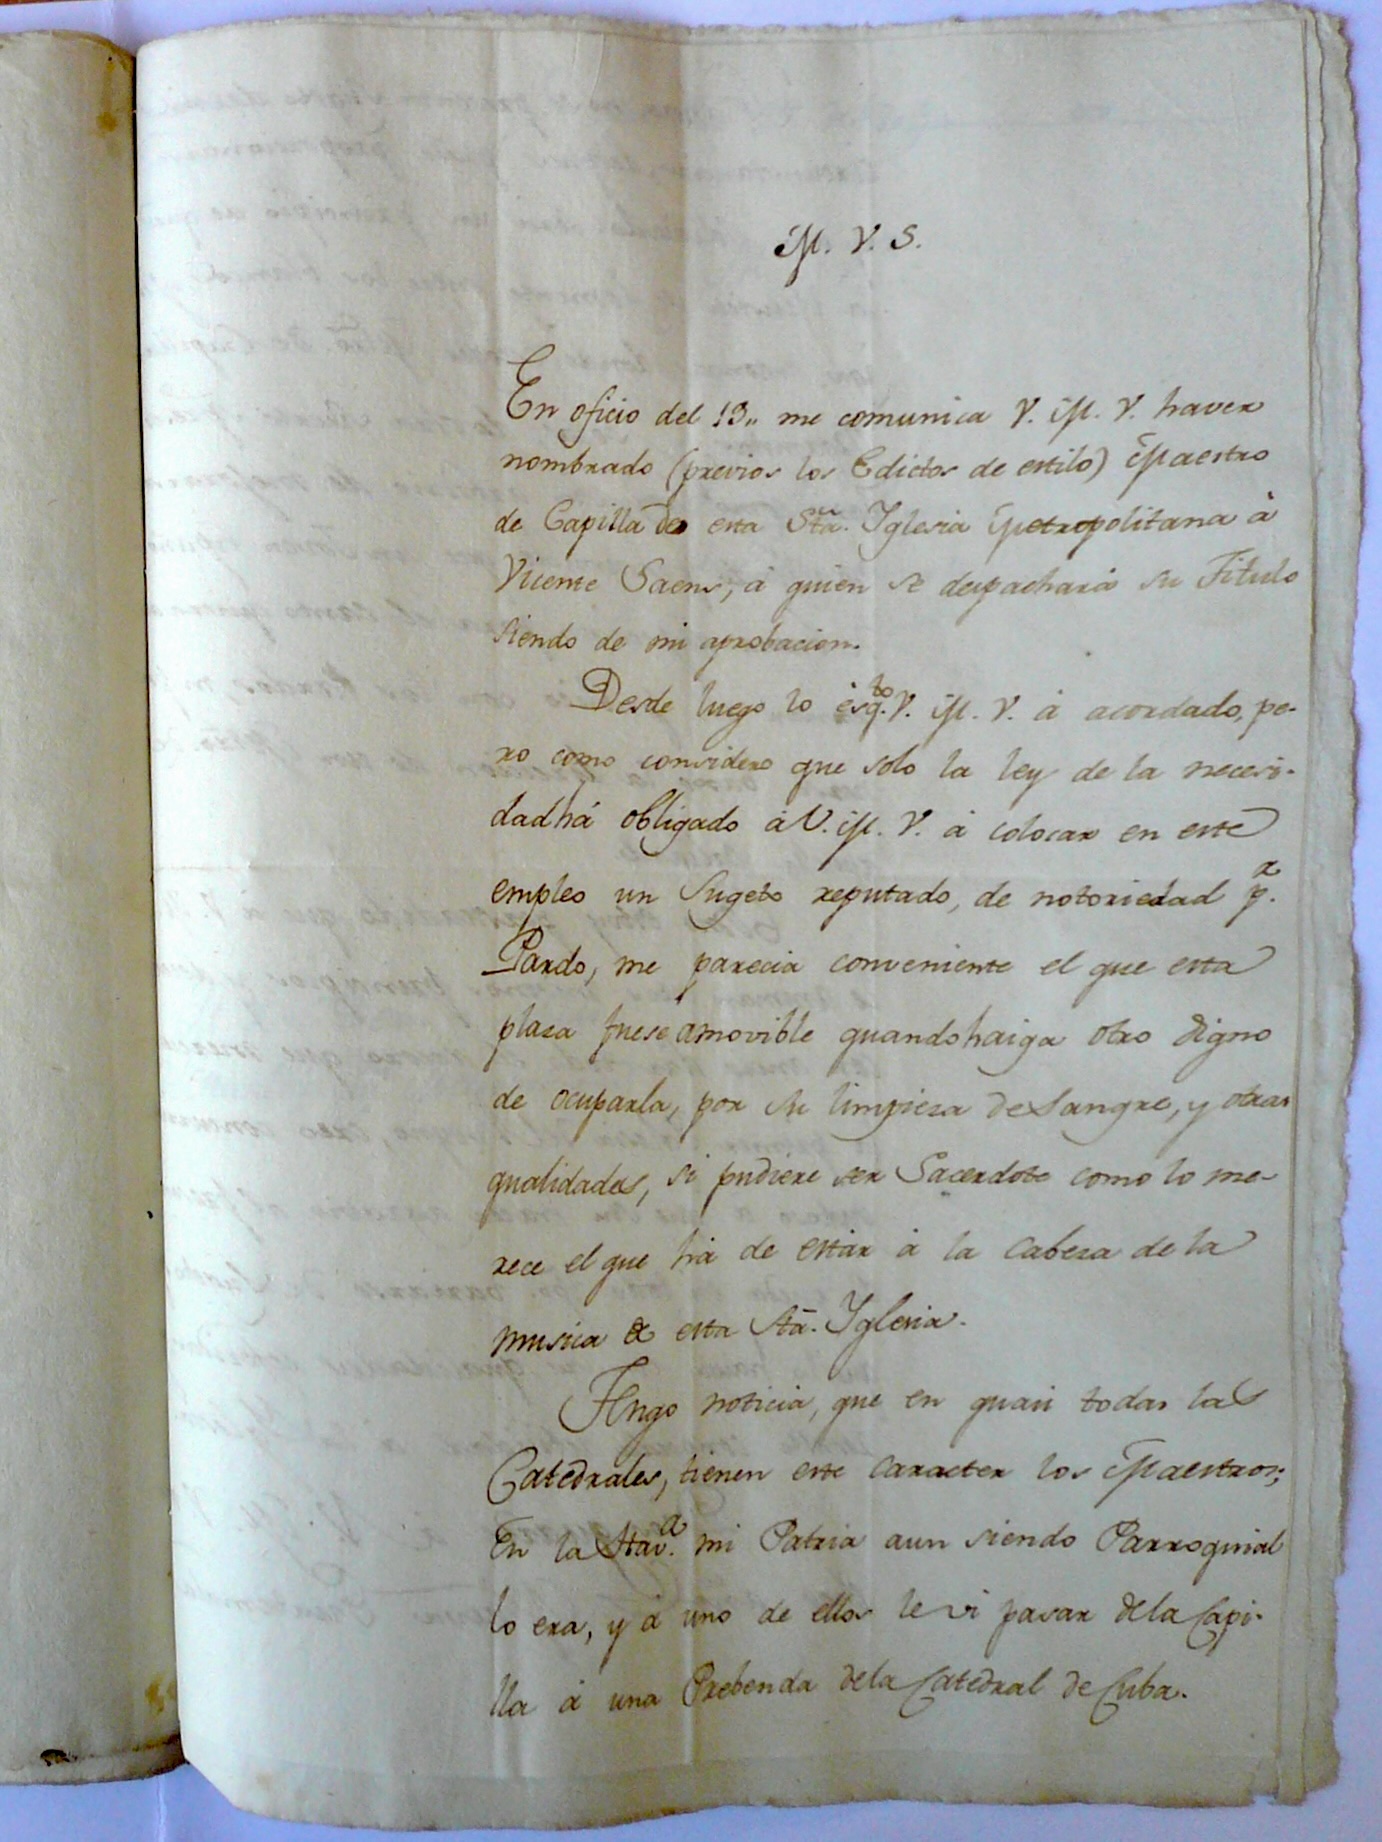 M. V. S.
En oficio del 13,, me comunica V. M. V. haver
nombrado (previos los Edictos de estilo) Maestro
de Capilla de esta Sta. Iglesia Metropolitana à
Vicente Saens, à quien se despachará su Titulo
siendo de mi aprobacion.
Desde luego lo es V. M. V. à acordado, pe-
ro como considero que solo la ley de la necesi-
dad há obligado à V. M. V. à colocar en este
empleo un Sugeto reputado, de notoriedad pr.
Pardo, me parecia conveniente el que esta
plaza fuese amovible quando haiga otro digno
de ocuparla, por su limpieza de Sangre, y otras
qualidades, si pudiere ser Sacerdote como lo me-
rece el que há de estár à la cabeza de la
musica de esta Sta. Iglesia.
Tengo noticia, que en quasi todas las
Catedrales, tienen este caracter los Maestros;
En la Hava. mi Patria aun siendo Parroquial
lo era, y à uno de ellos le vi pasar de la Capi-
lla à una Prebenda de la Catedral de Cuba.